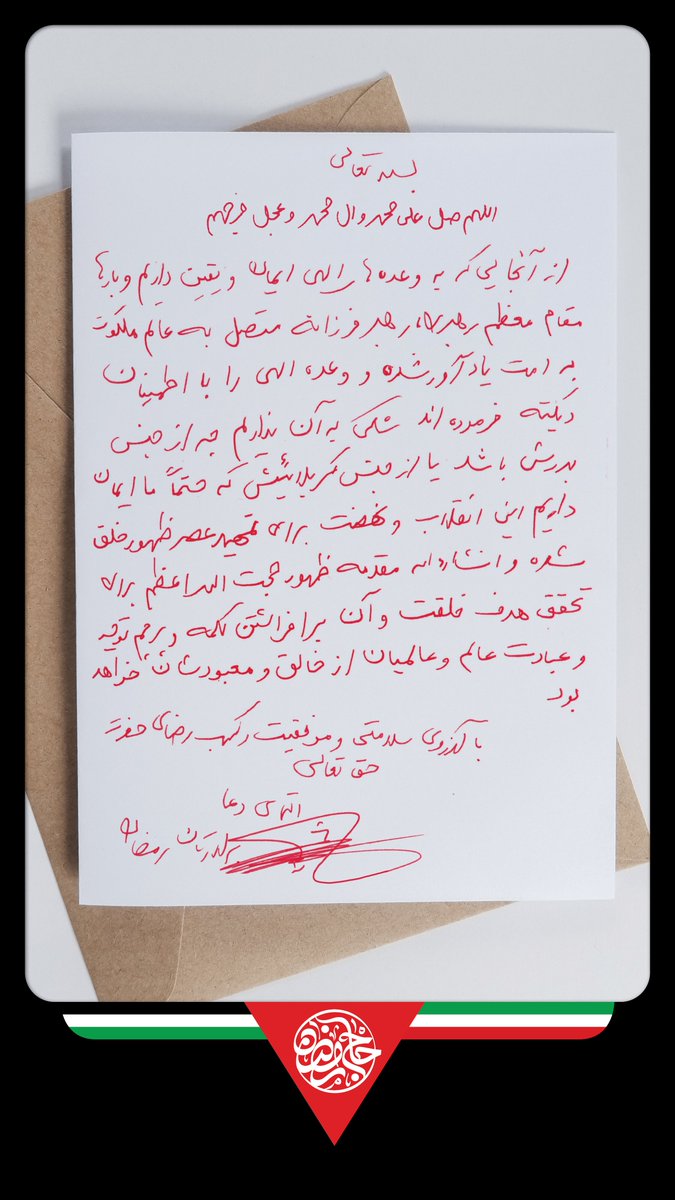 بسمه تعالی
اللهم صل علی محمد وال محمد وعجل فرجهم
از آنجایی که به وعده های الهی ایمان و یقین داریم و بارها
مقام معظم رهبری، رهبر فرزانه متصل به عالم ملکوت
به امت یادآور شده و وعده الهی را با اطمینان
فرموده اند شکی به آن نداریم چه از جنس
بدرش باشد یا از جنس کربلائیش که حتماً ما ایمان
داریم این انقلاب و نهضت برای تمهید عصر ظهور خلق
شده و انشاءالله مقدمه ظهور حجت الله اعظم برای
تحقق هدف خلقت و آن برافراشتن کلمه و پرچم توحید
و عبادت عالم و عالمیان از خالق و معبودشان خواهد
بود
با آرزوی سلامتی و موفقیت و کسب رضای حضرت
حق تعالی
التماس دعا
برادرتان رمضان
حاج رمضان